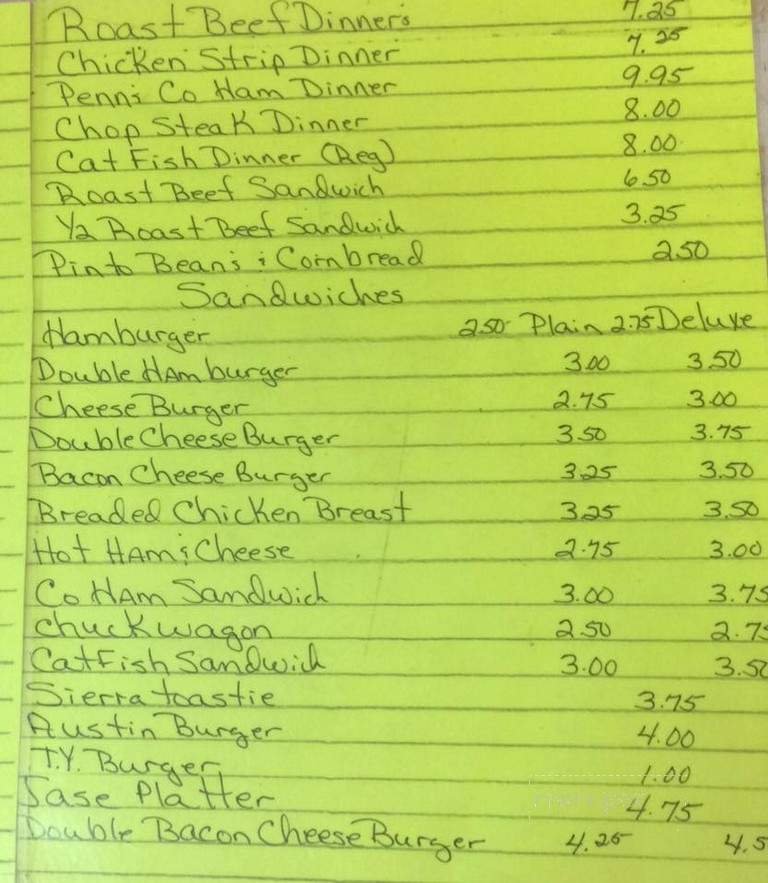 Roast Beef Dinners 7.25
Chicken Strip Dinner 7.25
Penn's Co Ham Dinner 9.95
Chop Steak Dinner 8.00
Cat Fish Dinner (Reg) 8.00
Roast Beef Sandwich 6.50
1/2 Roast Beef Sandwich 3.25
Pinto Beans & Cornbread 2.50
Sandwiches
Hamburger 2.50 Plain 2.75 Deluxe
Double HAmburger 3.00 3.50
Cheese Burger 2.75 3.00
Double Cheese Burger 3.50 3.75
Bacon Cheese Burger 3.25 3.50
Breaded Chicken Breast 3.25 3.50
Hot HAm & Cheese 2.75 3.00
Co HAm Sandwich 3.00 3.75
Chuckwagon 2.50 2.75
CatFish Sandwich 3.00 3.50
Sierra toastie 3.75
Austin Burger 4.00
T.Y. Burger 1.00
Jase Platter 4.75
Double Bacon Cheese Burger 4.25 4.5